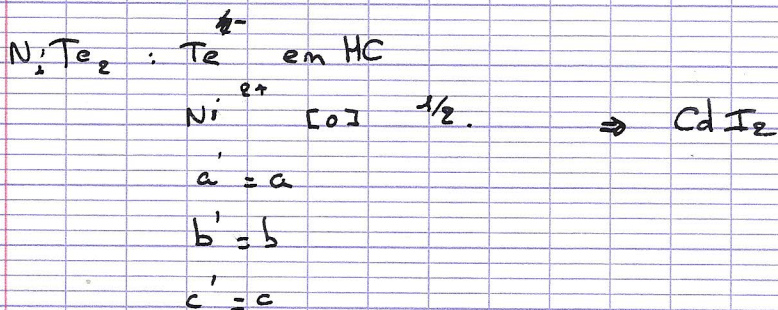 NiTe₂ : Te⁻ en HC
Ni²⁺ [o] 1/2. ⇒ CdI₂
a' = a
b' = b
c' = c